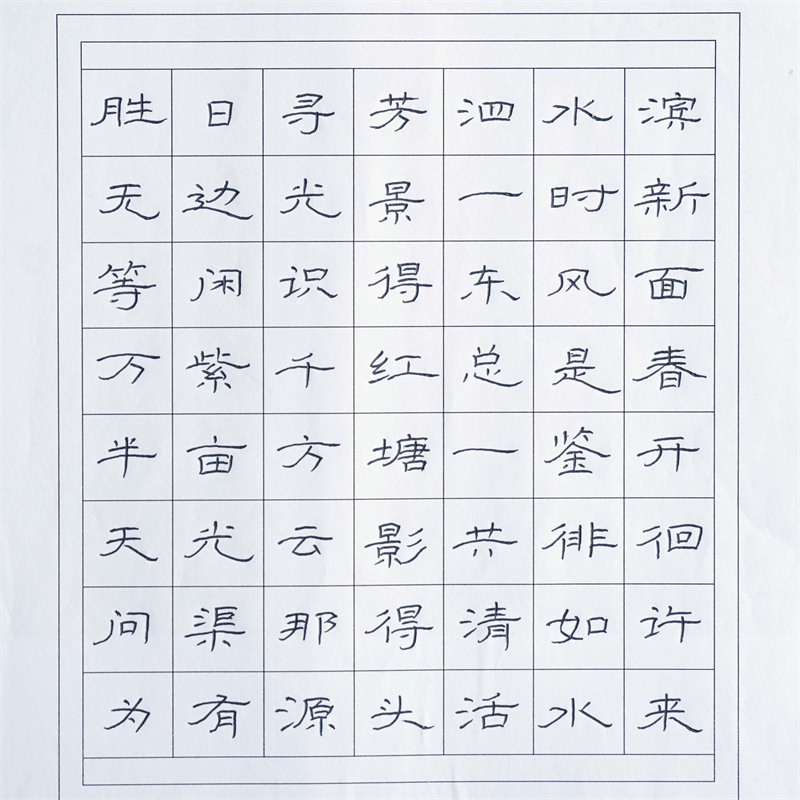 胜日寻芳泗水滨
无边光景一时新
等闲识得东风面
万紫千红总是春
半亩方塘一鉴开
天光云影共徘徊
问渠那得清如许
为有源头活水来